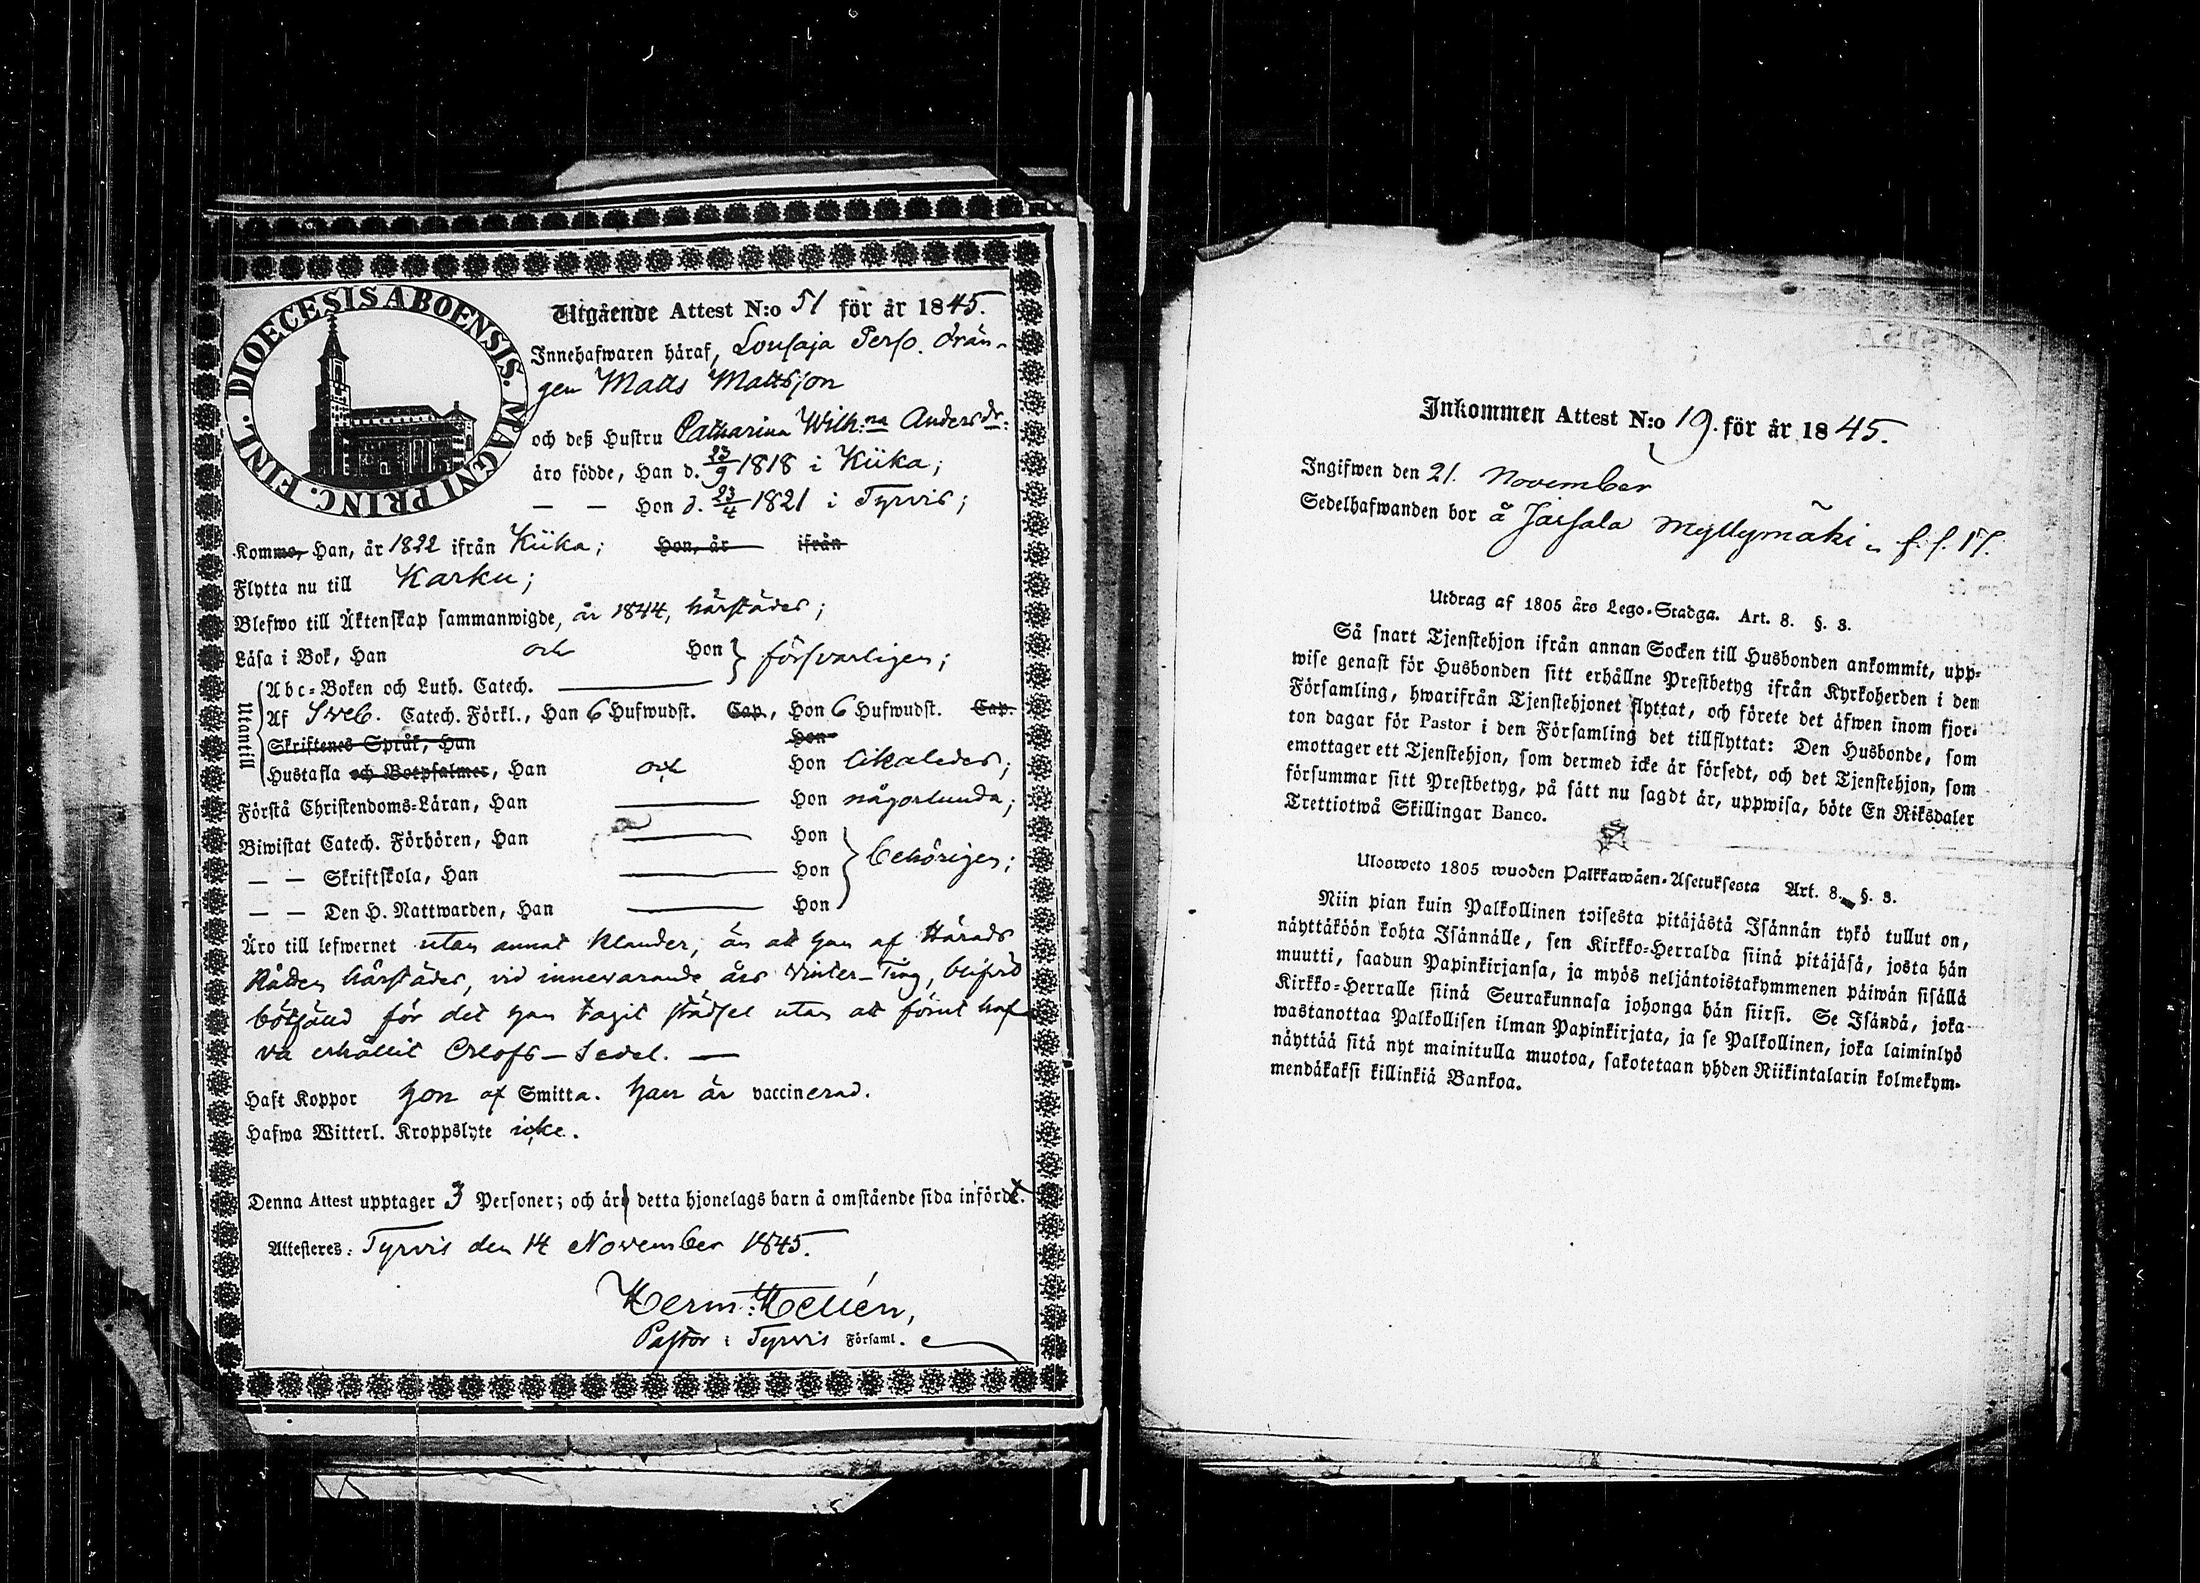 DIOECESIS ABOENSIS. MAGNI PRINC. FINL.
Utgående Attest N:o 51 för år 1845.
Innehafwaren häraf, Lousaja Perso. Drän-
gen Matts Mattsson
och deß Hustru Catharina Wilh:na Andersdr:
äro födde, Han d. 23/9 1818 i Kiika;
— — Hon d. 23/4 1821 i Tyrvis;
Komme, Han, år 1822 ifrån Kiika; Hon, år ifrån
Flytta nu till Karku;
Blefwo till Äktenskap sammanwigde, år 1844, härstädes;
Läsa i Bok, Han och Hon försvarligen;
Utantill
Abc-Boken och Luth. Catech.
Af Sveb. Catech. Förkl., Han 6 Hufwudst. Cap., Hon 6 Hufwudst. Cap.
Skriftenes Språk, Han Hon
Hustafla och Botpsalmer, Han och Hon likaledes;
Förstå Christendoms-Läran, Han — Hon någorlunda;
Biwistat Catech. Förhören, Han — Hon
— — Skriftskola, Han — Hon behörigen;
— — Den H. Nattwarden, Han — Hon
Äro till lefwernet utan annat klander, än att han af Härads
Rätten härstädes, vid innevarande års Vinter-Ting, blifvit
bötfälld för det han tagit städsel utan att förut haf
va erhållit Orlofs-Sedel. —
Haft Koppor Hon af Smitta. Han är vaccinerad.
Hafwa Witterl. Kroppslyte icke.
Denna Attest upptager 3 Personer; och äro detta hjonelags barn å omstående sida infördt.
Attesteres: Tyrvis den 14 November 1845.
Herm: Hellén,
Pastor i Tyrvis Församl.
Inkommen Attest N:o 19. för år 1845.
Ingifwen den 21. November
Sedelhafwanden bor å Jarsala Myllymäki
Utdrag af 1805 års Lego-Stadga. Art. 8. §. 3.
Så snart Tjenstehjon ifrån annan Socken till Husbonden ankommit, upp-
wise genast för Husbonden sitt erhållne Prestbetyg ifrån Kyrkoherden i den
Församling, hwarifrån Tjenstehjonet flyttat, och förete det äfwen inom fjor-
ton dagar för Pastor i den Församling det tillflyttat: Den Husbonde, som
emottager ett Tjenstehjon, som dermed icke är försedt, och det Tjenstehjon, som
försummar sitt Prestbetyg, på sätt nu sagdt är, uppwisa, böte En Riksdaler
Trettiotwå Skillingar Banco.
Ulosweto 1805 wuoden Palkkawäen-Asetuksesta Art. 8. §. 3.
Niin pian kuin Palkollinen toisesta pitäjästä Isännän tykö tullut on,
näyttäköön kohta Isännälle, sen Kirkko-Herralda siinä pitäjäsä, josta hän
muutti, saadun Papinkirjansa, ja myös neljäntoistakymmenen päiwän sisällä
Kirkko-Herralle siinä Seurakunnasa johonga hän siirsi. Se Isändä, joka
wastanottaa Palkollisen ilman Papinkirjata, ja se Palkollinen, joka laiminlyö
näyttää sitä nyt mainitulla muotoa, sakotetaan yhden Riikintalarin kolmekym-
mendäkaksi killinkiä Bankoa.